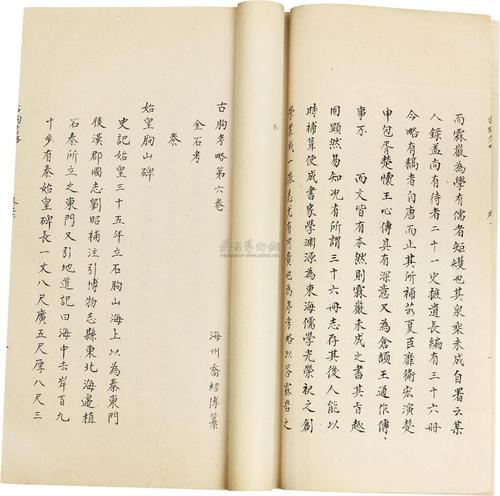 而霖巖為學有儒者矩矱也其泉桒未成自署云某
人錄蓋尚有待者二十一史摭遺長編有三十六冊
今略有稿者自唐而止其所補
申包胥楚懷王心傳具有深意又為倉頡王遒作傳
事不 而文皆有本然則霖巖未成之書其旨趣
固顯然易知況有所謂三十六冊志存其後人能以
時補算使成書家學渊源為東海儒學光榮
古朐考略第六卷
海州 紹傅纂
金石考
秦
始皇朐山碑
史記始皇三十五年立石朐山海上以為秦東門
後漢郡國志劉昭補注引博物志縣東北海邊植
石秦所立之東門又引地道記曰海中去岸百九
十步有秦始皇碑長一丈八尺廣五尺厚八尺三